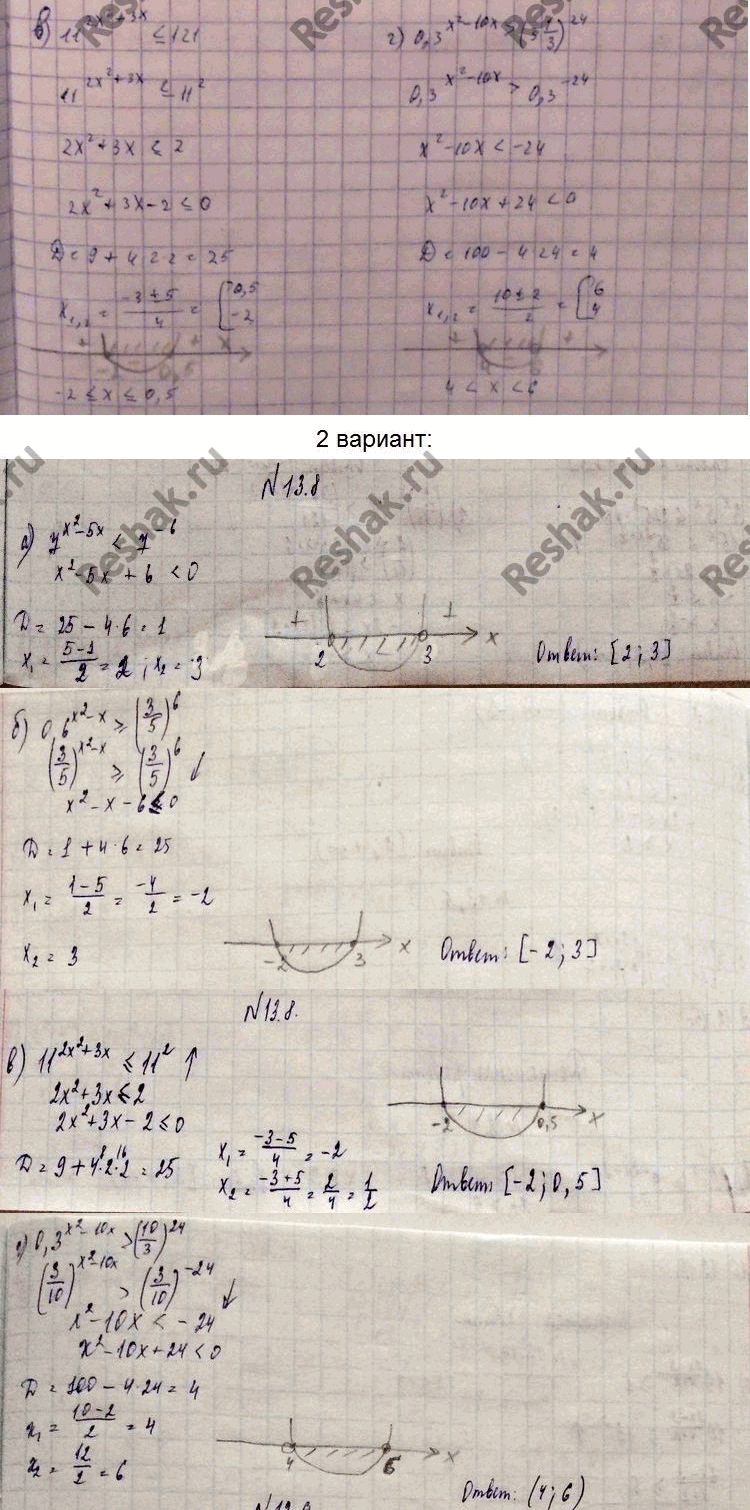 в) 11^(2x²+3x) ≤ 121
11^(2x²+3x) ≤ 11²
2x²+3x ≤ 2
2x²+3x−2 ≤ 0
D = 9+4·2·2 = 25
x₁,₂ = (−3±5)/4 = [0,5 −2
+ + x
−2 0,5
−2 ≤ x ≤ 0,5
г) 0,3^(x²−10x) > (3 1/3)^24
0,3^(x²−10x) > 0,3^(−24)
x²−10x < −24
x²−10x+24 < 0
D = 100−4·24 = 4
x₁,₂ = (10±2)/2 = [6 4
+ +
4 6
4 < x < 6
2 вариант:
N13.8
а) 7^(x²−5x) ≤ 7^(−6)
x²−5x+6 < 0
D = 25−4·6 = 1
x₁ = (5−1)/2 = 2 ; x₂ = 3
+ + x
2 3
Ответ: [2; 3]
б) 0,6^(x²−x) ≥ (3/5)^6
(3/5)^(x²−x) ≥ (3/5)^6 ↓
x²−x−6 ≤ 0
D = 1+4·6 = 25
x₁ = (1−5)/2 = −4/2 = −2
x₂ = 3
−2 3 x
Ответ: [−2; 3]
N13.8.
в) 11^(2x²+3x) ≤ 11² ↑
2x²+3x ≤ 2
2x²+3x−2 ≤ 0
D = 9+4·2·2 = 25
16
x₁ = (−3−5)/4 = −2
x₂ = (−3+5)/4 = 2/4 = 1/2
−2 0,5 x
Ответ: [−2; 0,5]
г) 0,3^(x²−10x) > (10/3)^24
(3/10)^(x²−10x) > (3/10)^(−24) ↓
x²−10x < −24
x²−10x+24 < 0
D = 100−4·24 = 4
x₁ = (10−2)/2 = 4
x₂ = 12/2 = 6
4 6 x
Ответ: (4; 6)
Reshak.ru
Reshak.ru
Reshak.ru
Reshak.ru